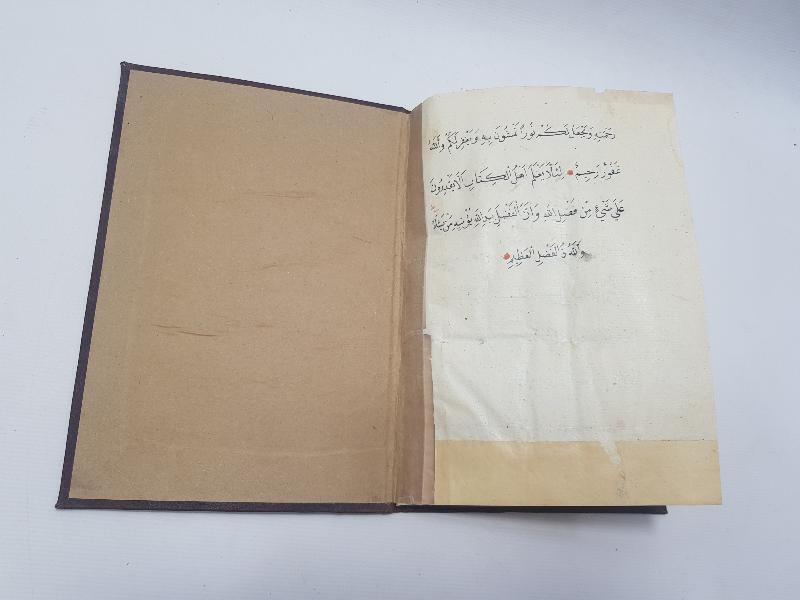 رَحْمَتِهِ وَيَجْعَلْ لَكُمْ نُورًا تَمْشُونَ بِهِ وَيَغْفِرْ لَكُمْ وَاللَّهُ
غَفُورٌ رَحِيمٌ لِئَلَّا يَعْلَمَ أَهْلُ الْكِتَابِ أَلَّا يَقْدِرُونَ
عَلَى شَيْءٍ مِنْ فَضْلِ اللَّهِ وَأَنَّ الْفَضْلَ بِيَدِ اللَّهِ يُؤْتِيهِ مَنْ يَشَاءُ
وَاللَّهُ ذُو الْفَضْلِ الْعَظِيمِ